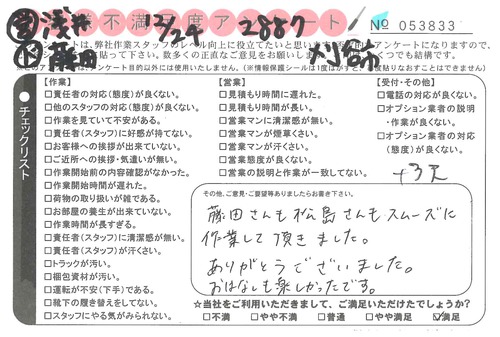 責 浅井 12/24 2887
作 藤田
不満度アンケート
№ 053833
チェックリスト
【作業】
□責任者の対応(態度)が良くない。
□他のスタッフの対応(態度)が良くない。
□作業を見ていて不安がある。
□責任者(スタッフ)に好感が持てない。
□お客様への挨拶が出来ていない。
□ご近所への挨拶・気遣いが無い。
□作業開始前の内容確認がなかった。
□作業開始時間が遅れた。
□荷物の取り扱いが雑である。
□お部屋の養生が出来ていない。
□作業時間が長すぎる。
□責任者(スタッフ)に清潔感が無い。
□責任者(スタッフ)が汗くさい。
□トラックが汚い。
□梱包資材が汚い。
□運転が不安(下手)である。
□靴下の履き替えをしてない。
□スタッフにやる気がみられない。
【営業】
□見積もり時間に遅れた。
□見積もり時間が長い。
□営業マンに清潔感が無い。
□営業マンが煙草くさい。
□営業マンが汗くさい。
□営業態度が良くない。
□営業の説明と作業が一致してない。
【受付・その他】
□電話の対応が良くない。
□オプション業者の説明
・作業が良くない。
□オプション業者の対応
(態度)が良くない。
その他、ご意見・ご要望等ありましたらお書き下さい。
藤田さんも松島さんもスムーズに
作業して頂きました。
ありがとうございました。
おはなしも楽しかったです。
☆当社をご利用いただきまして、ご満足いただけたでしょうか?
□不満 □やや不満 □普通 □やや満足 ☑満足